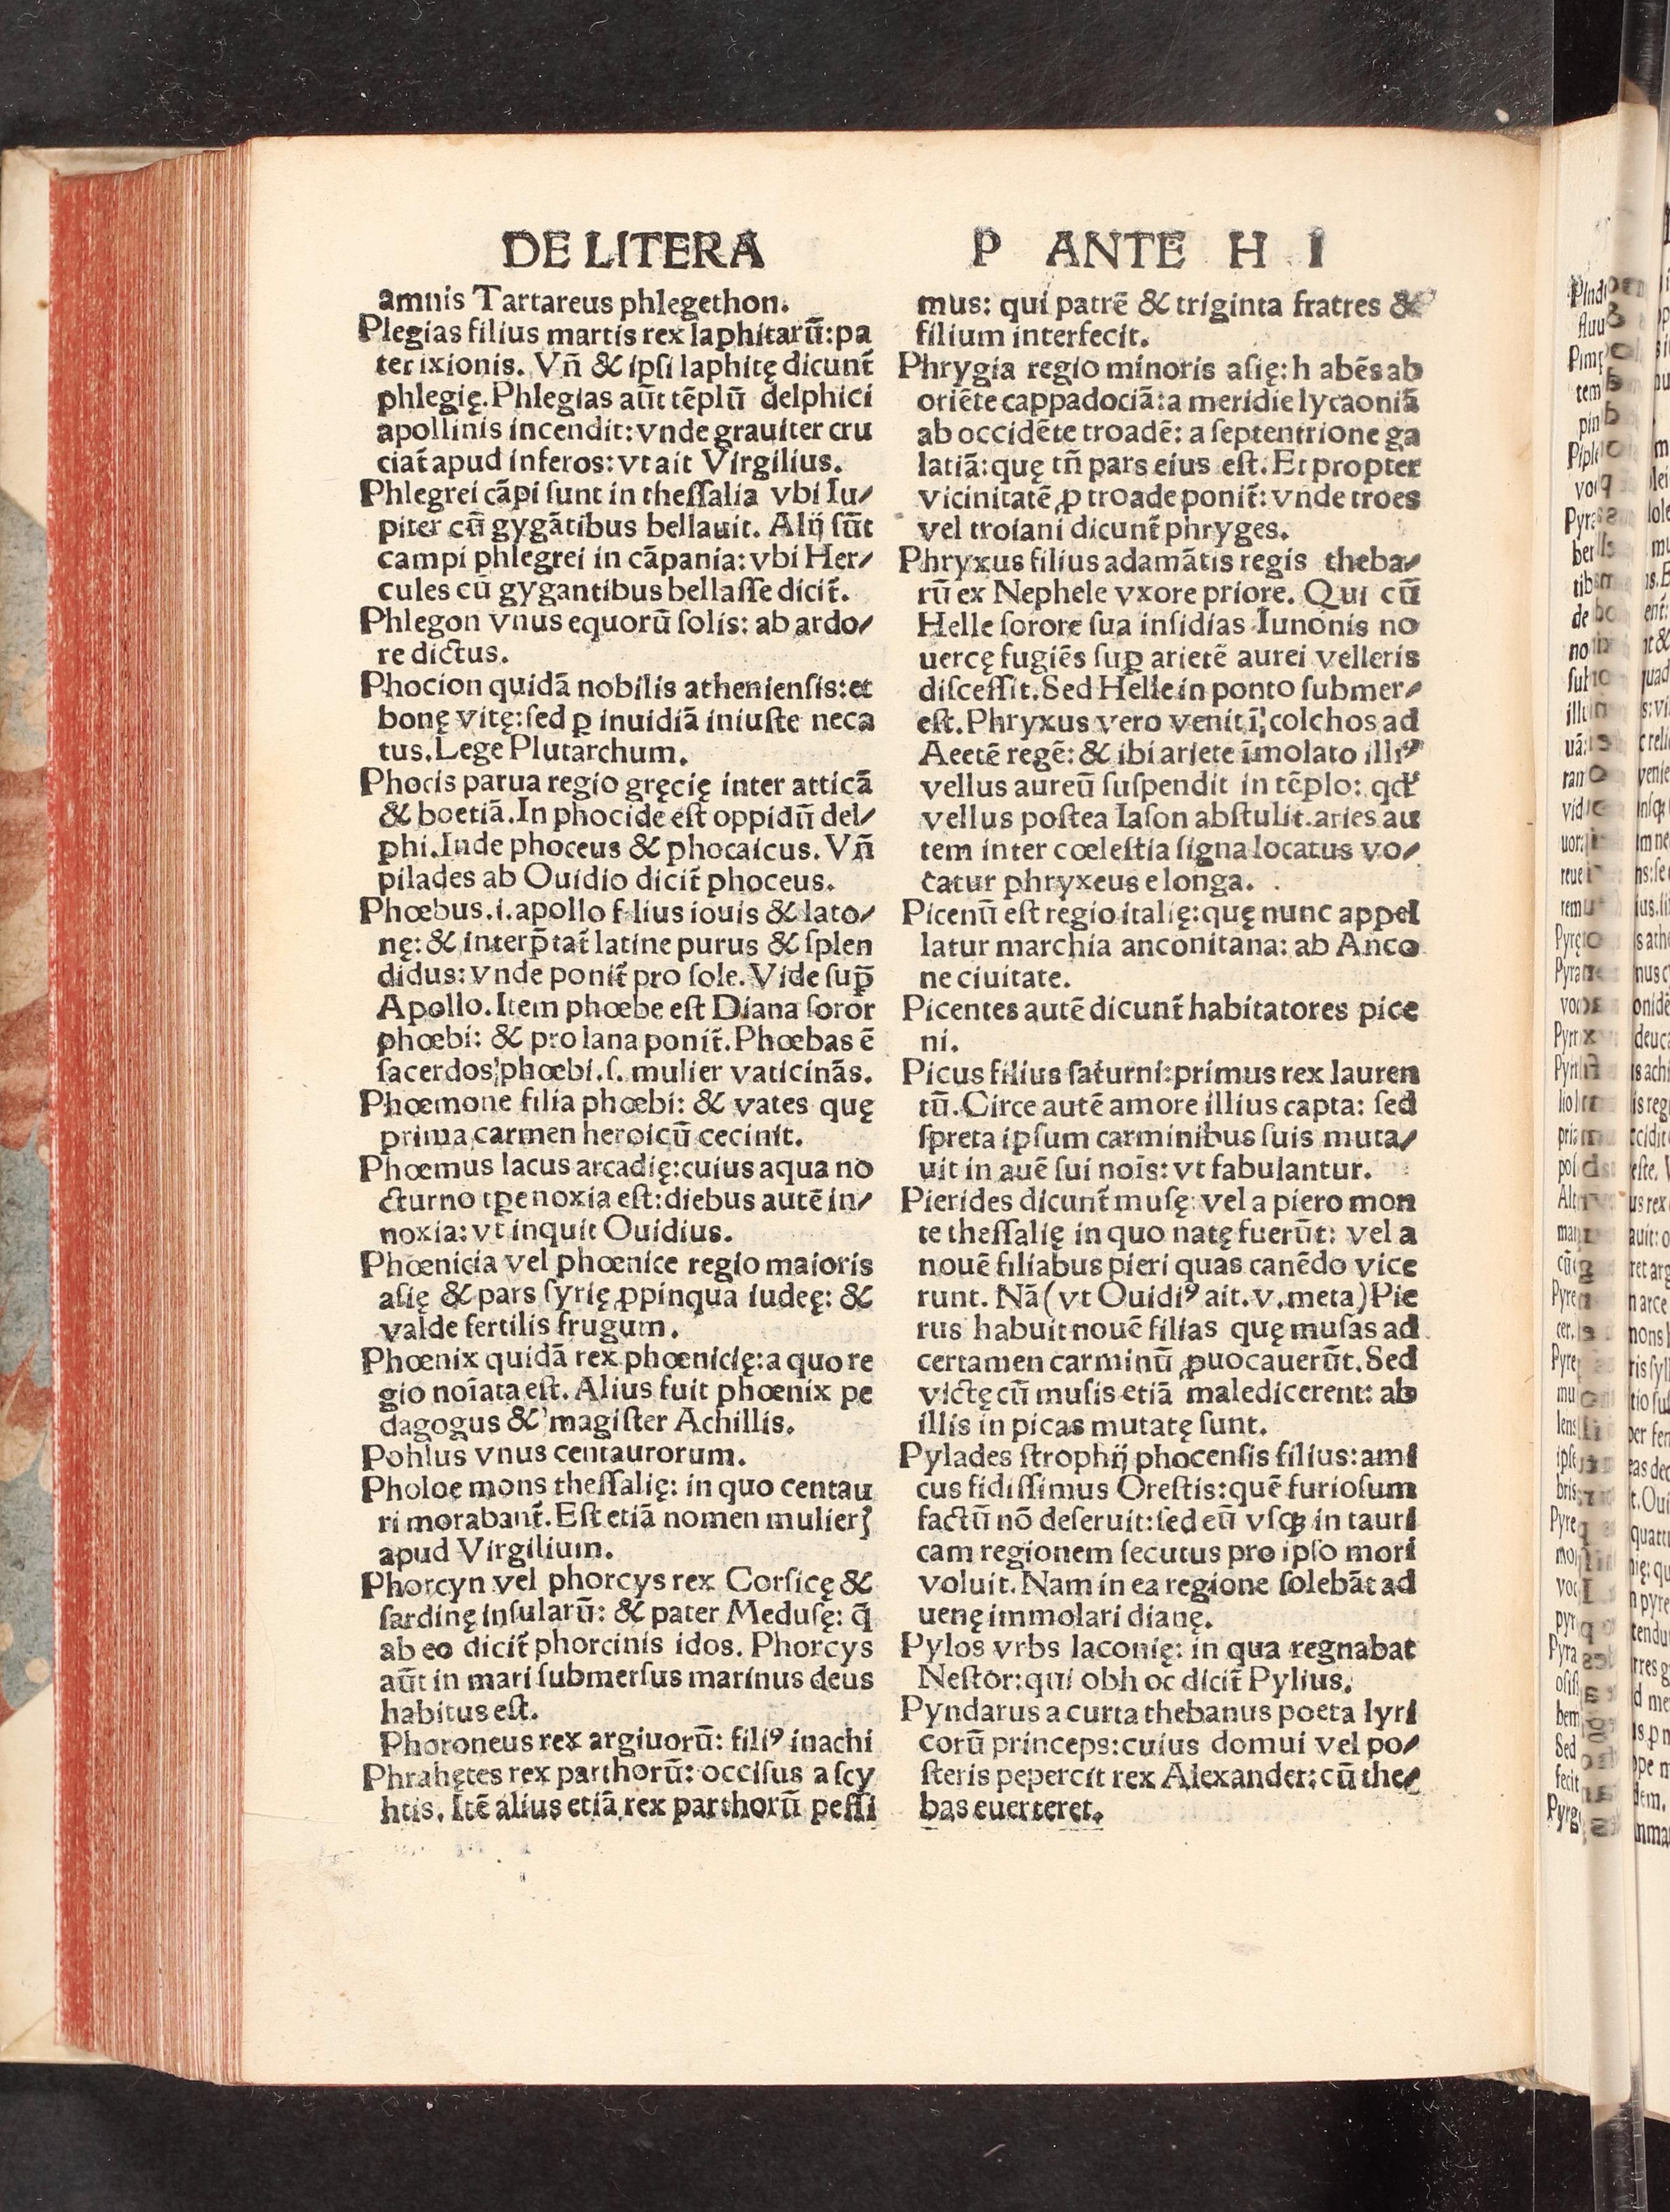 DE LITERA P ANTE H I
amnis Tartareus phlegethon.
Plegias filius martis rex laphitarū:pa
ter ixionis. Vn̄ & ipſi laphitę dicunt̄
phlegię.Phlegias aūt tēplū delphici
apollinis incendit:vnde grauiter cru
ciat̄ apud inferos:vt ait Virgilius.
Phlegrei cāpi ſunt in theſſalia vbi Iu/
piter cū gygātibus bellauit. Alij ſūt
campi phlegrei in cāpania:vbi Her/
cules cū gygantibus bellaſſe dicit̄.
Phlegon vnus equorū ſolis: ab ardo/
re dictus.
Phocion quidā nobilis athenienſis:et
bonę vitę:ſed ꝑ inuidiā iniuſte neca
tus.Lege Plutarchum.
Phocis parua regio gręcię inter atticā
& boetiā.In phocide eſt oppidū del/
phi.Inde phoceus & phocaicus. Vn̄
pilades ab Ouidio dicit̄ phoceus.
Phœbus.i.apollo filius iouis & lato/
nę:& interp̄tat̄ latine purus & ſplen
didus:vnde ponit̄ pro ſole.Vide ſup̄
Apollo.Item phœbe eſt Diana ſoror
phœbi: & pro lana ponit̄.Phœbas ē
ſacerdos phœbi.ſ. mulier vaticinās.
Phœmone filia phœbi: & vates quę
prima carmen heroicū cecinit.
Phœmus lacus arcadię:cuius aqua no
cturno tꝑe noxia eſt:diebus autē in/
noxia:vt inquit Ouidius.
Phœnicia vel phœnice regio maioris
aſię & pars ſyrię ꝓpinqua iudeę: &
valde fertilis frugum.
Phœnix quidā rex phœnicię:a quo re
gio noīata eſt. Alius fuit phœnix pe
dagogus & magiſter Achillis.
Pohlus vnus centaurorum.
Pholoe mons theſſalię: in quo centau
ri morabant̄.Eſt etiā nomen mulierꝭ
apud Virgilium.
Phorcyn vel phorcys rex Corſicę &
ſardinę inſularū: & pater Meduſę: q̄
ab eo dicit̄ phorcinis idos. Phorcys
aūt in mari ſubmerſus marinus deus
habitus eſt.
Phoroneus rex argiuorū: filiꝰ inachi
Phrahętes rex parthorū: occiſus a ſcy
htis. Itē alius etiā rex parthorū peſſi
mus: qui patrē & triginta fratres &
filium interfecit.
Phrygia regio minoris aſię:h abēs ab
oriēte cappadociā:a meridie lycaoniā
ab occidēte troadē: a ſeptentrione ga
latiā:quę tn̄ pars eius eſt.Et propter
vicinitatē ꝓ troade ponit̄:vnde troes
vel troiani dicunt̄ phryges.
Phryxus filius adamātis regis theba/
rū ex Nephele vxore priore. Qui cū
Helle ſorore ſua inſidias Iunonis no
uercę fugiēs ſuꝑ arietē aurei velleris
diſceſſit.Sed Helle in ponto ſubmer/
eſt.Phryxus vero venit ī colchos ad
Aeetē regē: & ibi ariete īmolato illiꝰ
vellus aureū ſuſpendit in tēplo: qđ
vellus poſtea Iaſon abſtulit.aries au
tem inter cœleſtia ſigna locatus vo/
catur phryxeus e longa.
Picenū eſt regio italię:quę nunc appel
latur marchia anconitana: ab Anco
ne ciuitate.
Picentes autē dicunt̄ habitatores pice
ni.
Picus filius ſaturni:primus rex lauren
tū.Circe autē amore illius capta: ſed
ſpreta ipſum carminibus ſuis muta/
uit in auē ſui noīs: vt fabulantur.
Pierides dicunt̄ muſę: vel a piero mon
te theſſalię in quo natę fuerūt: vel a
nouē filiabus pieri quas canēdo vice
runt. Nā (vt Ouidiꝰ ait.v.meta) Pie
rus habuit nouē filias quę muſas ad
certamen carminū ꝓuocauerūt.Sed
victę cū muſis etiā maledicerent: ab
illis in picas mutatę ſunt.
Pylades ſtrophij phocenſis filius:ami
cus fidiſſimus Oreſtis:quē furioſum
factū nō deſeruit:ſed eū vſqꝫ in tauri
cam regionem ſecutus pro ipſo mori
voluit.Nam in ea regione ſolebāt ad
uenę immolari dianę.
Pylos vrbs laconię: in qua regnabat
Neſtor:qui obh oc dicit̄ Pylius.
Pyndarus a curta thebanus poeta lyri
corū princeps:cuius domui vel po/
ſteris pepercit rex Alexander:cū the/
bas euerteret.